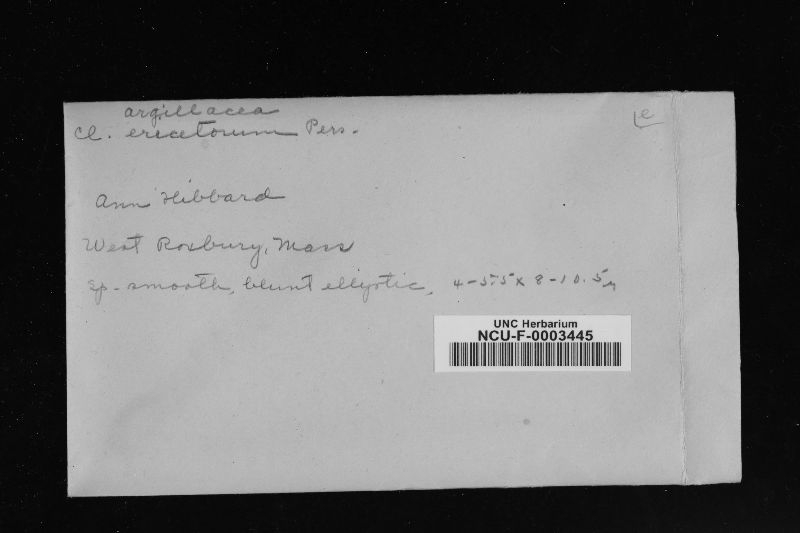 argillacea
Cl. ericetorum Pers.
e
Ann Hibbard
West Roxbury, Mass
Sp. smooth, blunt elliptic, 4-5.5 x 8-10.5 μ
UNC Herbarium
NCU-F-0003445